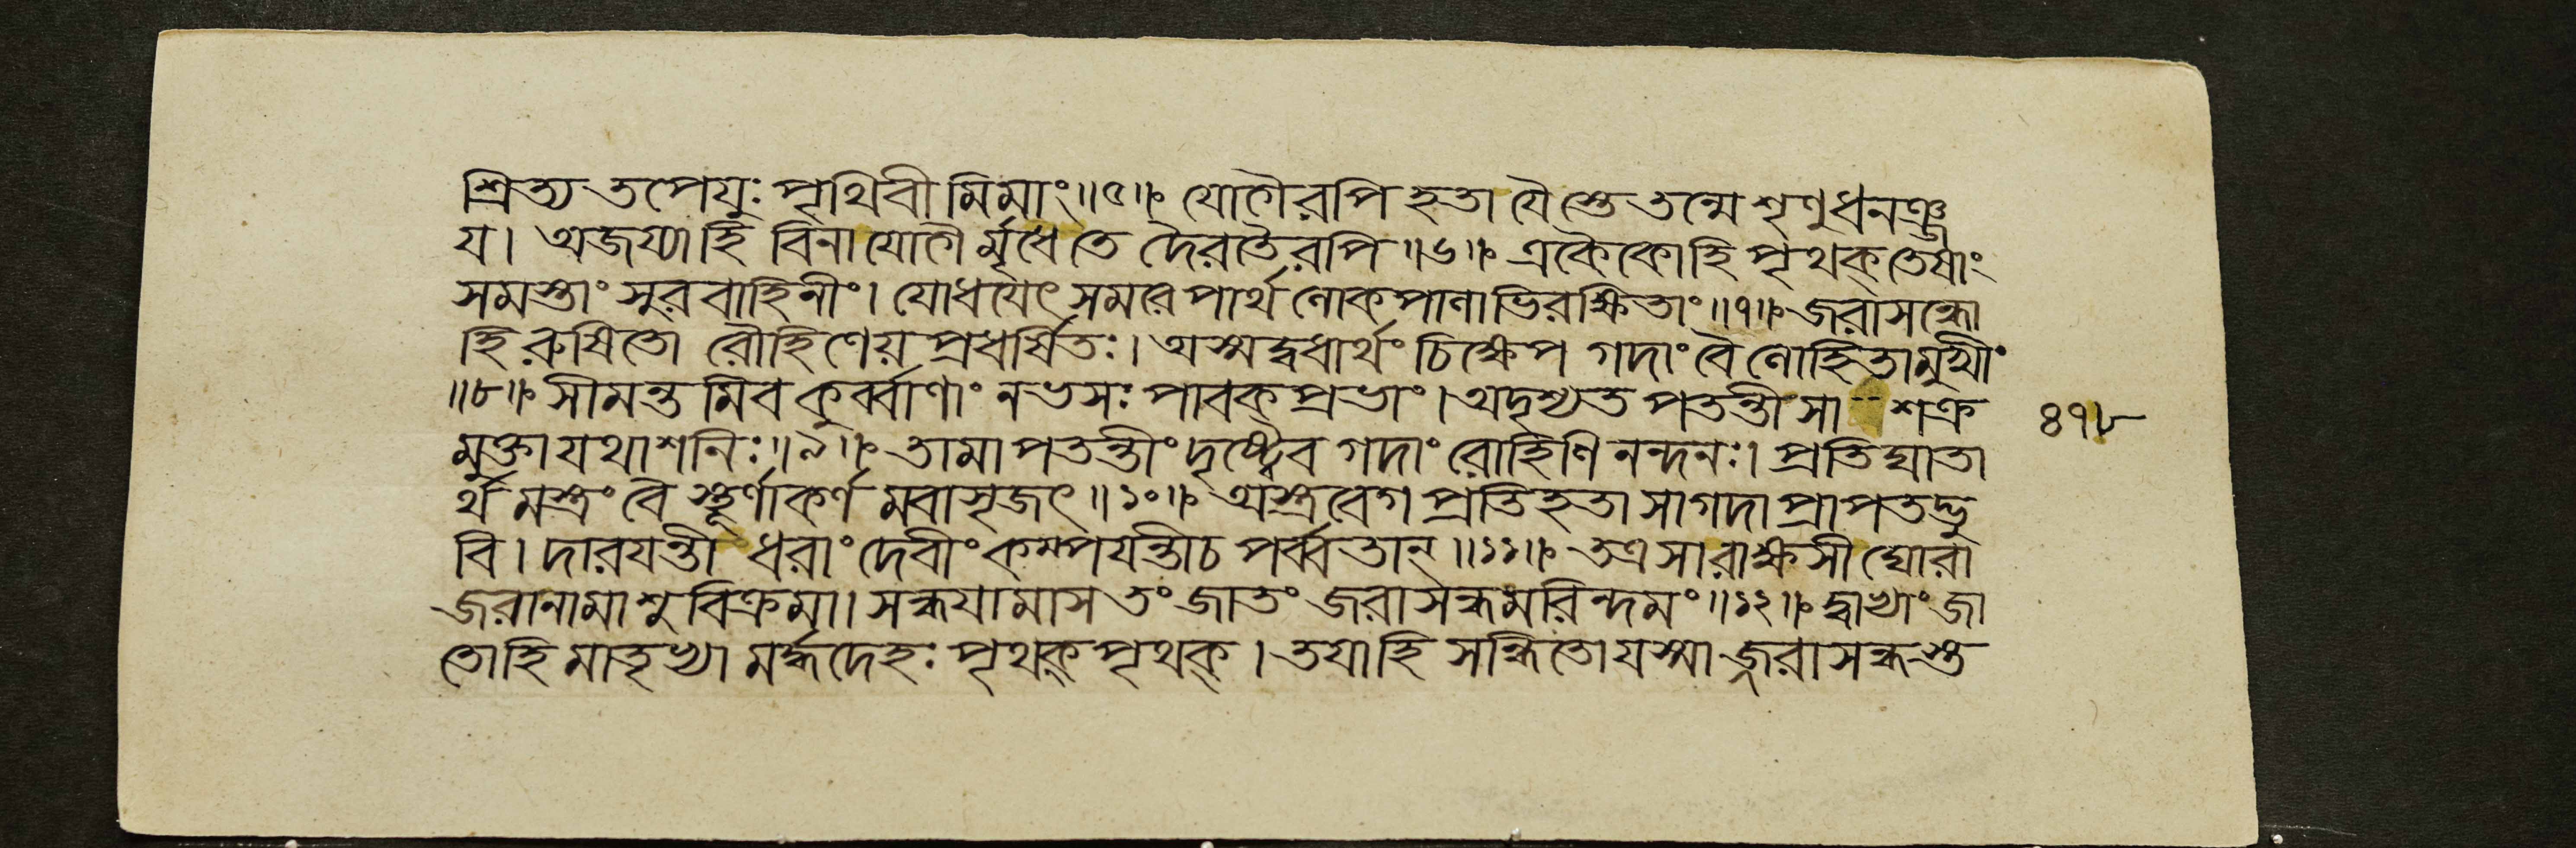 শ্রিত্য তপেযুঃ পৃথিবীমিমাং॥৫॥ যোগৈরপি হতা যৈস্তে তন্মে শৃণু ধনঞ্জ
য। অজয্যা হি বিনা যোগৈর্মৃধে তে দৈবতৈরপি॥৬॥ একৈকোহি পৃথক্ তেষাং
সমস্তাং সুরবাহিনীং। যোধযেৎ সমরে পার্থ লোকপালাভিরক্ষিতাং॥৭॥ জরাসন্ধো
হি রুষিতো রৌহিণেয় প্রধর্ষিতঃ। অস্মদ্বধার্থং চিক্ষেপ গদাং বৈ লোহিতামুখীং
॥৮॥ সীমন্তমিব কুর্ব্বাণাং নভসঃ পাবকপ্রভাং। অদৃশ্যত পতন্তী সা শক্র
মুক্তা যথাশনিঃ॥৯॥ তামাপতন্তীং দৃষ্ট্বৈব গদাং রোহিণিনন্দনঃ। প্রতিঘাতা
র্থমস্ত্রং বৈ স্থূণাকর্ণমবাসৃজৎ॥১০॥ অস্ত্রবেগপ্রতিহতা সা গদা প্রাপতদ্ভু
বি। দারযন্তী ধরাং দেবীং কম্পযন্তীচ পর্ব্বতান্॥১১॥ তত্র সা রাক্ষসী ঘোরা
জরানামাশুবিক্রমা। সন্ধযামাস তং জাতং জরাসন্ধমরিন্দমং॥১২॥ দ্বাভ্যাং জা
তোহি মাতৃভ্যামর্দ্ধদেহঃ পৃথক্ পৃথক্। তযাহি সন্ধিতো যস্মাজ্জরাসন্ধস্তু
৪৭৮